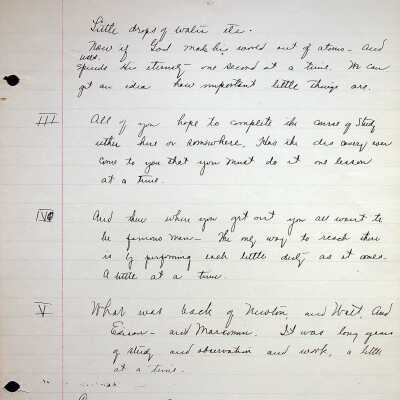 Little drops of water etc.
Now if God made his world out of atoms - and
uses
spends His eternity one second at a time. We can
get an idea how important little things are.
III All of you hope to complete the course of Study
either here or somewhere. Has the discovery ever
come to you that you must do it one lesson
at a time.
IV And then when you get out you all want to
be famous men - The only way to reach there
is by performing each little duty as it comes.
A little at a time.
V What was back of Newton, and Watt, And
Edison - and Marconi. It was long years
of study and observation and work, a little
at a time.